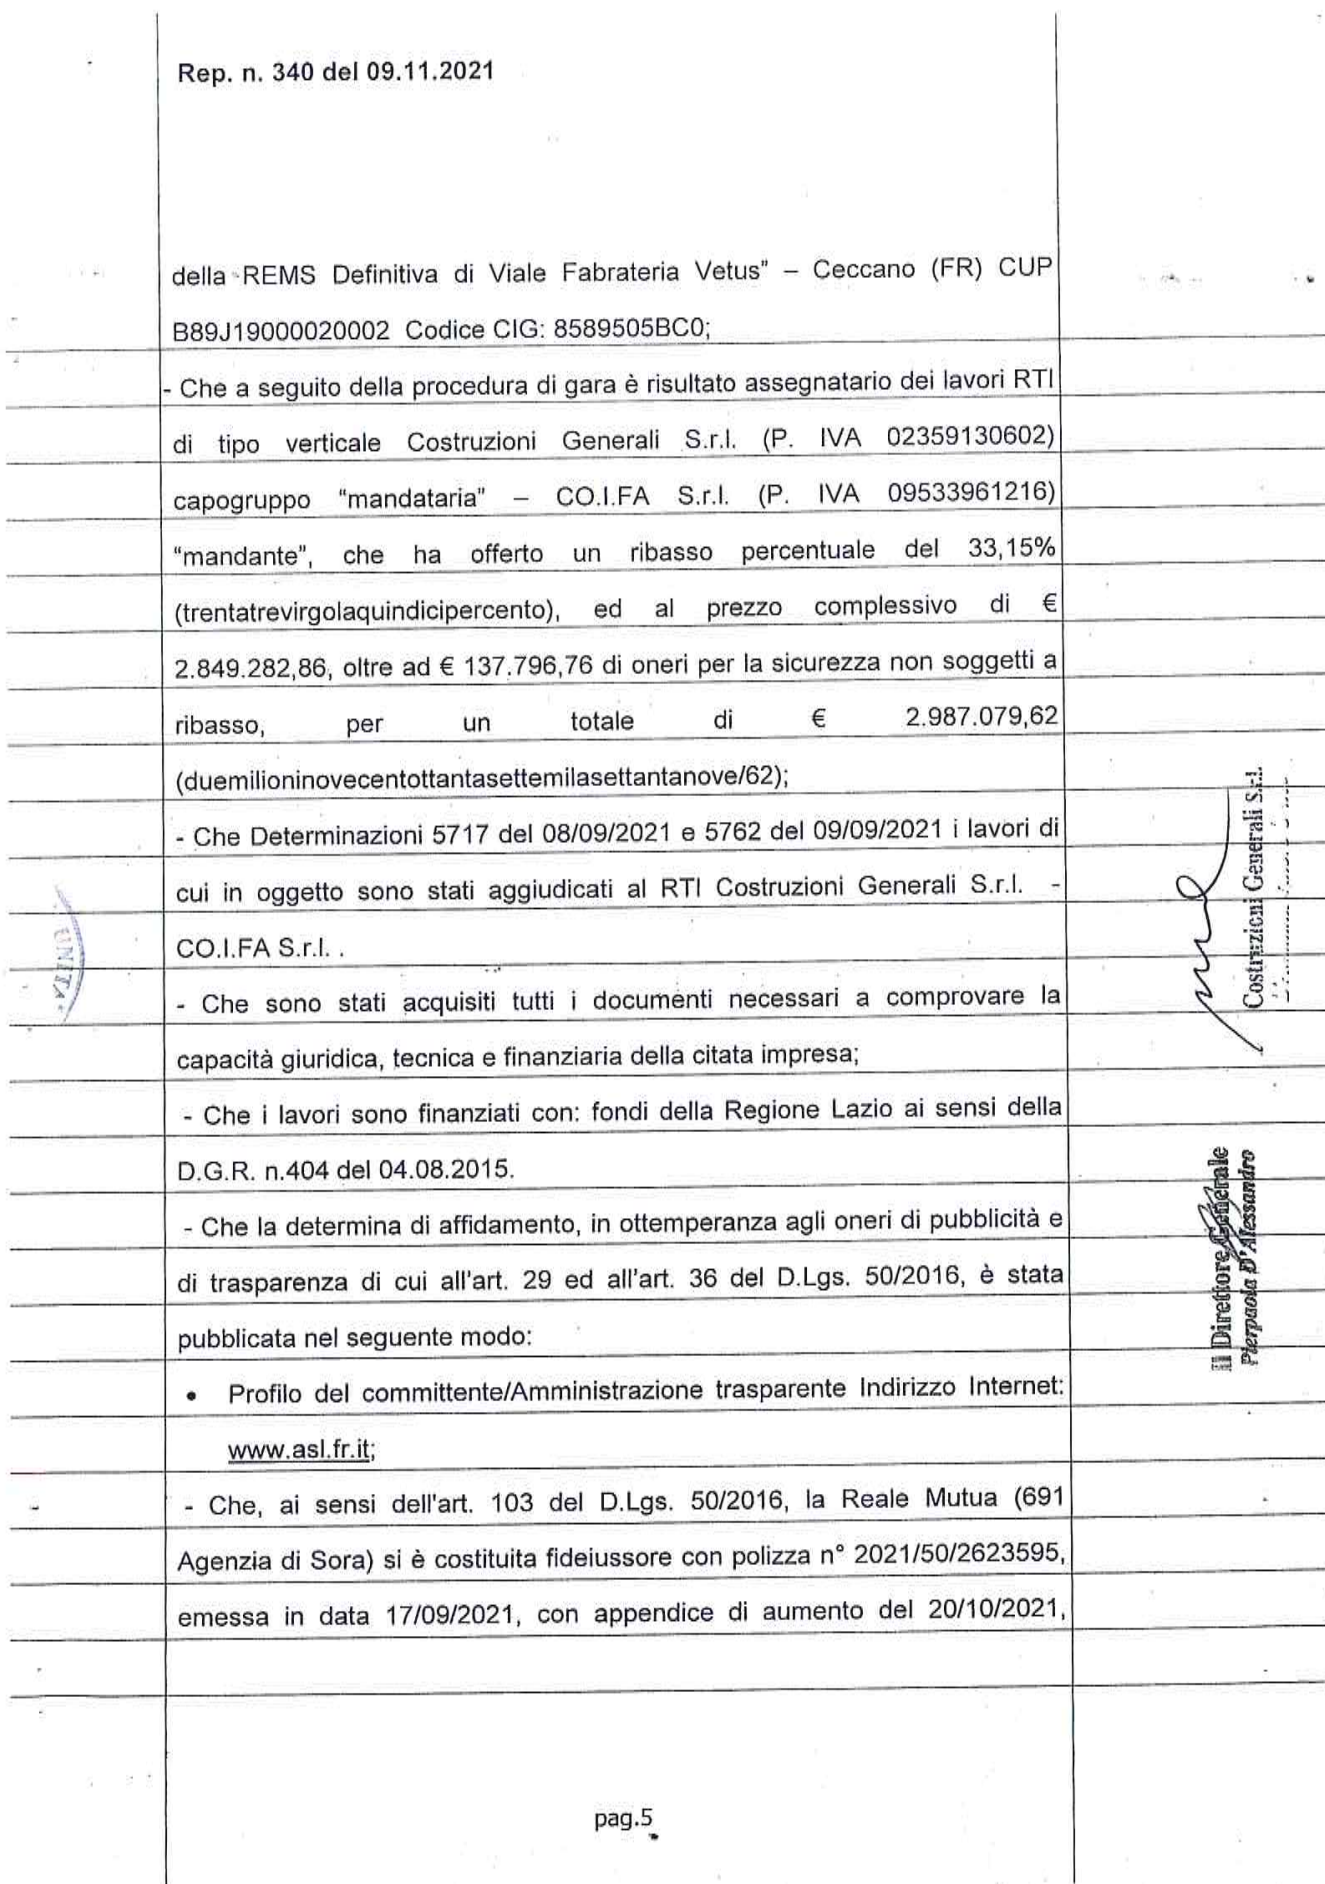 Rep. n. 340 del 09.11.2021
della REMS Definitiva di Viale Fabrateria Vetus” – Ceccano (FR) CUP
B89J19000020002 Codice CIG: 8589505BC0;
- Che a seguito della procedura di gara è risultato assegnatario dei lavori RTI
di tipo verticale Costruzioni Generali S.r.l. (P. IVA 02359130602)
capogruppo “mandataria” – CO.I.FA S.r.l. (P. IVA 09533961216)
“mandante”, che ha offerto un ribasso percentuale del 33,15%
(trentatrevirgolaquindicipercento), ed al prezzo complessivo di €
2.849.282,86, oltre ad € 137.796,76 di oneri per la sicurezza non soggetti a
ribasso, per un totale di € 2.987.079,62
(duemilioninovecentottantasettemilasettantanove/62);
- Che Determinazioni 5717 del 08/09/2021 e 5762 del 09/09/2021 i lavori di
cui in oggetto sono stati aggiudicati al RTI Costruzioni Generali S.r.l. -
CO.I.FA S.r.l. .
- Che sono stati acquisiti tutti i documenti necessari a comprovare la
capacità giuridica, tecnica e finanziaria della citata impresa;
- Che i lavori sono finanziati con: fondi della Regione Lazio ai sensi della
D.G.R. n.404 del 04.08.2015.
- Che la determina di affidamento, in ottemperanza agli oneri di pubblicità e
di trasparenza di cui all'art. 29 ed all'art. 36 del D.Lgs. 50/2016, è stata
pubblicata nel seguente modo:
• Profilo del committente/Amministrazione trasparente Indirizzo Internet:
www.asl.fr.it;
- Che, ai sensi dell'art. 103 del D.Lgs. 50/2016, la Reale Mutua (691
Agenzia di Sora) si è costituita fideiussore con polizza n° 2021/50/2623595,
emessa in data 17/09/2021, con appendice di aumento del 20/10/2021,
pag.5
UNITA
Costruzioni Generali S.r.l.
Il Direttore Generale
Pierpaola D'Alessandro